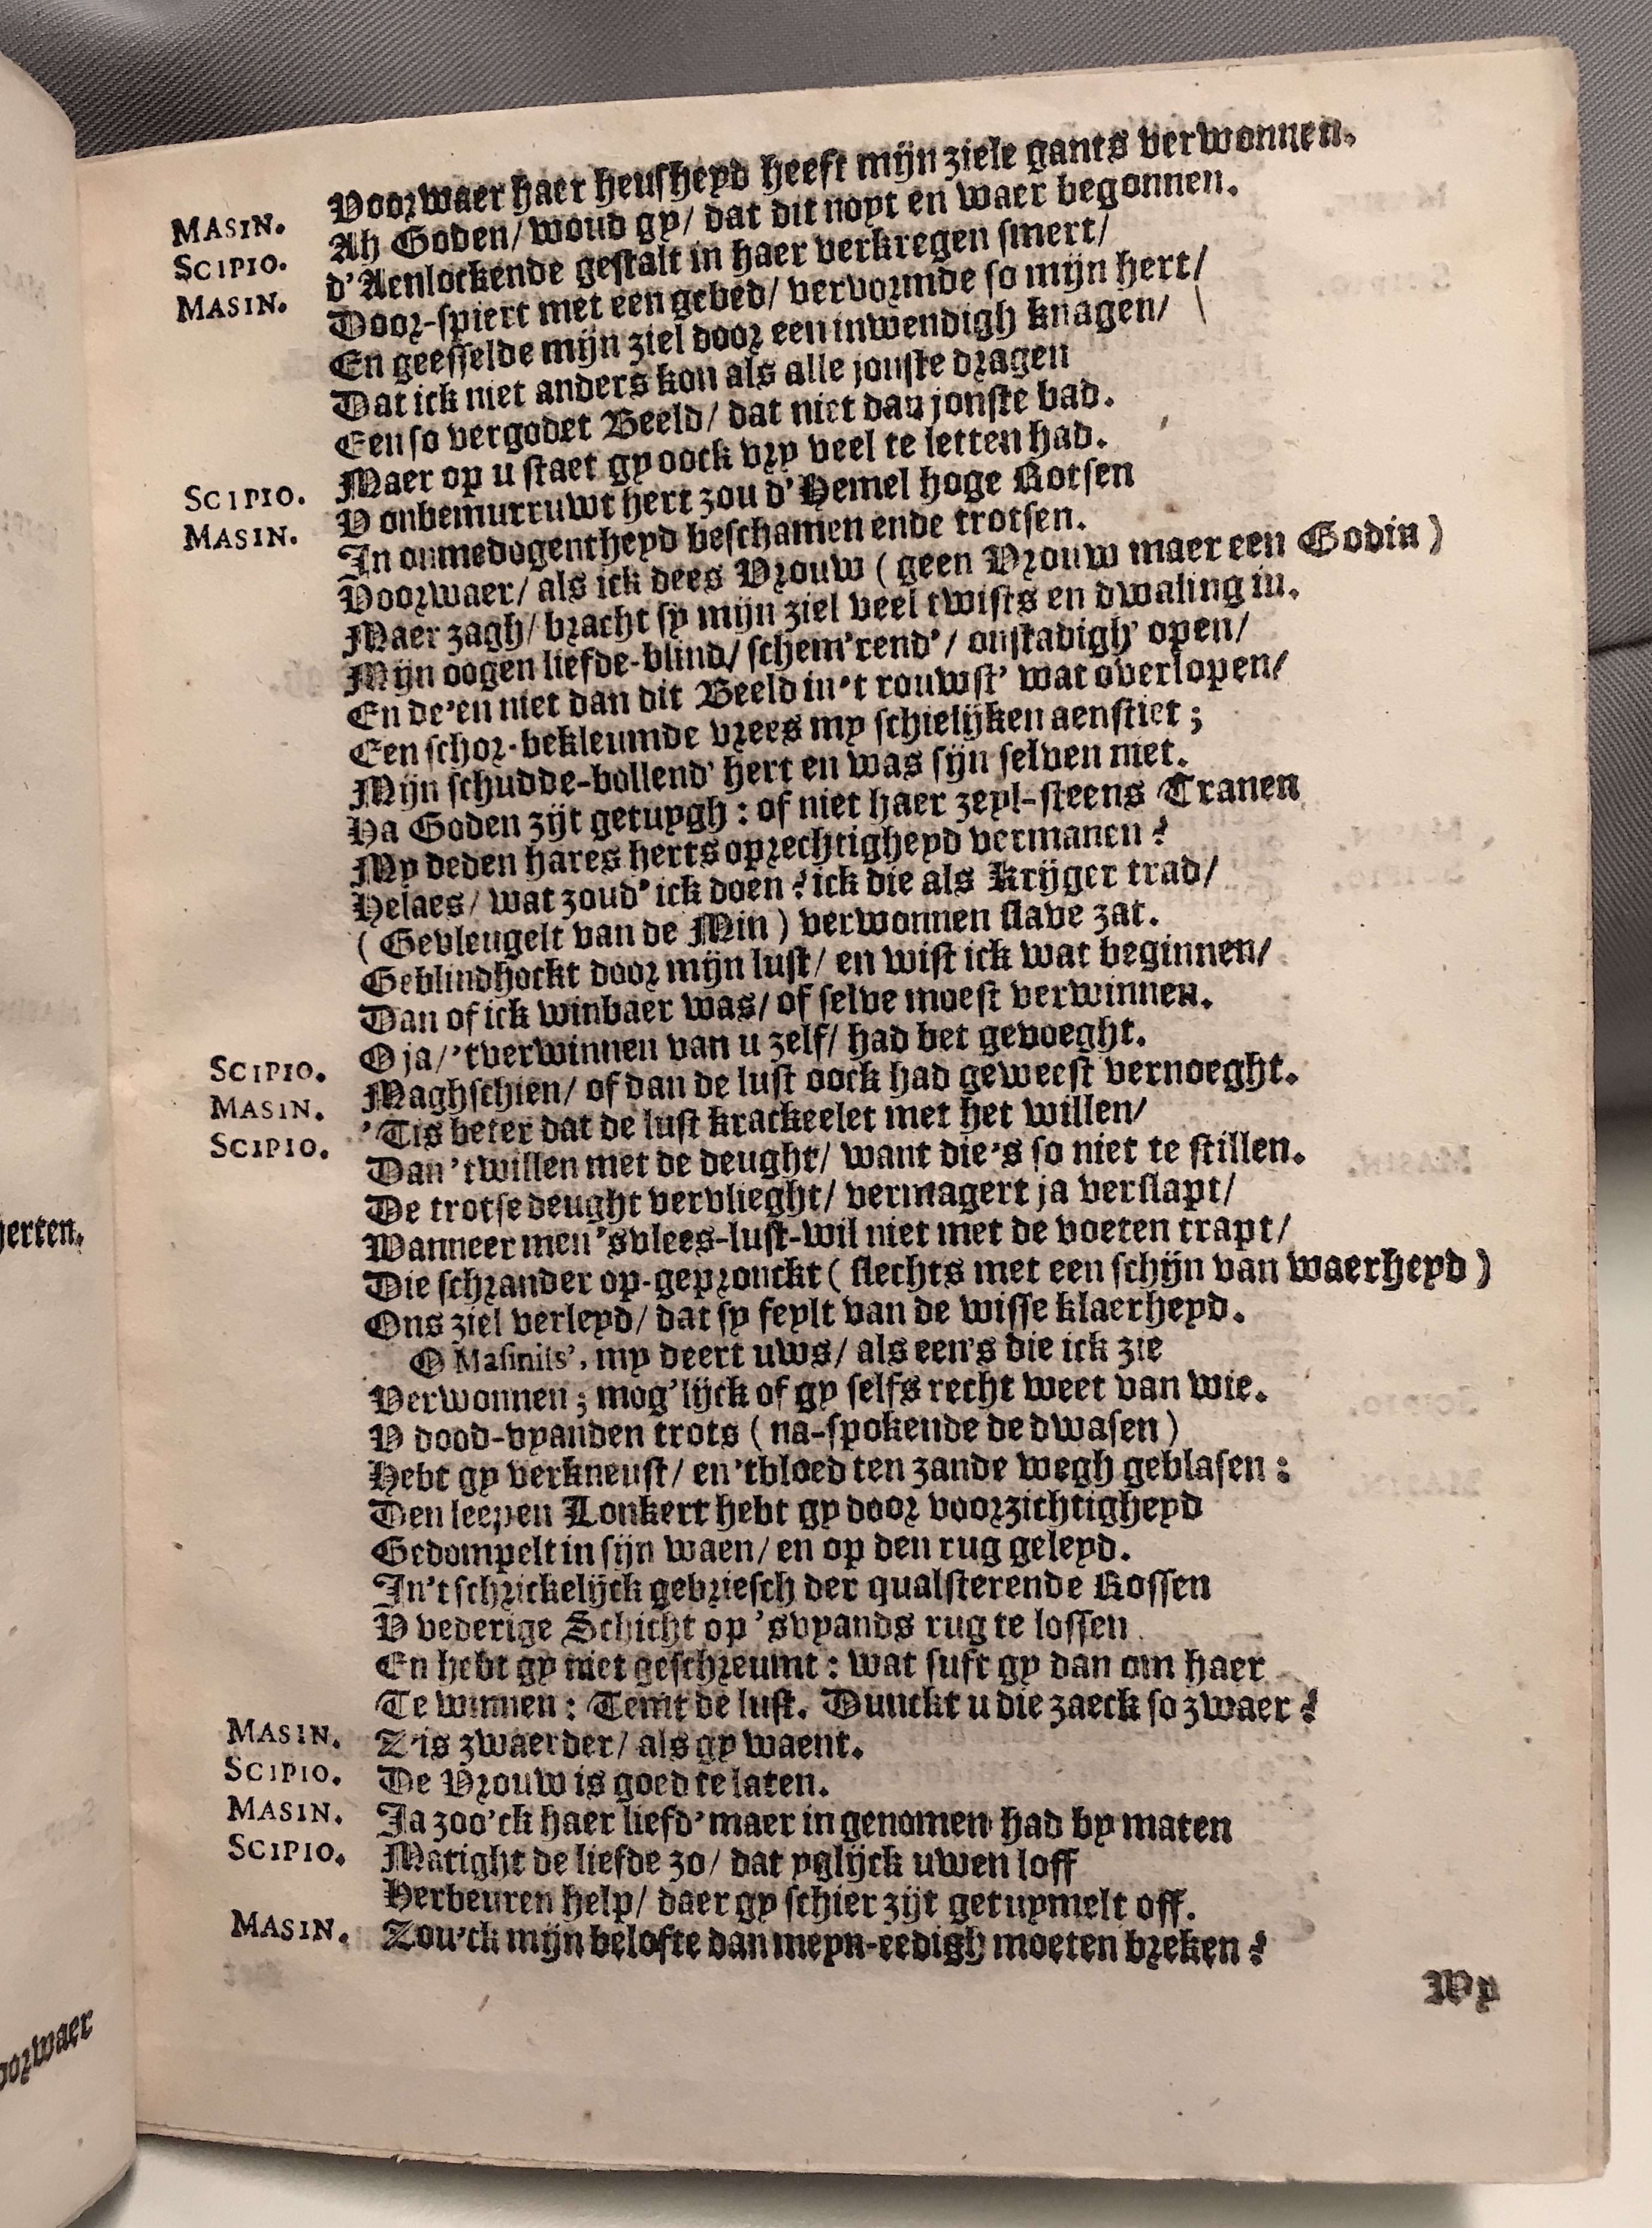 MASIN. Voorwaer haer heusheyd heeft mijn ziele gants verwonnen.
SCIPIO. Ah Goden/ woud gy/ dat dit noyt en waer begonnen.
MASIN. d'Aenlockende gestalt in haer verkregen smert/
Door-spiert met een gebed/ vervormde so mijn hert/
En geesselde mijn ziel door een inwendigh knagen/
Dat ick niet anders kon als alle jonste dragen
Een so vergodet Beeld/ dat niet dan jonste bad.
SCIPIO. Maer op u staet gy oock vry veel te letten had.
MASIN. V onbemurruwt hert zou d'Hemel hoge Rotsen
In onmedogentheyd beschamen ende trotsen.
Voorwaer/ als ick dees Vrouw ( geen Vrouw maer een Godin )
Maer zagh/ bracht sy mijn ziel veel twists en dwaling in.
Mijn oogen liefde-blind/ schem'rend'/ onstadigh' open/
En de'en niet dan dit Beeld in't rouwst' wat overlopen/
Een schor-bekleumde vrees my schielijken aenstiet ;
Mijn schudde-bollend' hert en was sijn selven niet.
Ha Goden zijt getuygh : of niet haer zeyl-steens Tranen
My deden hares herts oprechtigheyd vermanen ?
Helaes/ wat zoud' ick doen ? ick die als Krijger trad/
( Gevleugelt van de Min ) verwonnen slave zat.
Geblindhockt door mijn lust/ en wist ick wat beginnen/
Dan of ick winbaer was/ of selve moest verwinnen.
SCIPIO. O ja/ 'tverwinnen van u zelf/ had bet gevoeght.
MASIN. Maghschien/ of dan de lust oock had geweest vernoeght.
SCIPIO. 'Tis beter dat de lust krackeelet met het willen/
Dan 'twillen met de deught/ want die's so niet te stillen.
De trotse deught vervlieght/ vermagert ja verslapt/
Wanneer men 'svlees-lust-wil niet met de voeten trapt/
Die schrander op-gepronckt ( slechts met een schijn van waerheyd )
Ons ziel verleyd/ dat sy feylt van de wisse klaerheyd.
O Masinils', my deert uws/ als een's die ick zie
Verwonnen ; mog'lijck of gy selfs recht weet van wie.
V dood-vyanden trots ( na-spokende de dwasen )
Hebt gy verkneust/ en 'tbloed ten zande wegh geblasen :
Den leepen Lonkert hebt gy door voorzichtigheyd
Gedompelt in sijn waen/ en op den rug geleyd.
In't schrickelijck gebriesch der qualsterende Rossen
V vederige Schicht op 'svyands rug te lossen
En hebt gy niet geschreumt : wat suft gy dan om haer
Te winnen : Temt de lust. Dunckt u die zaeck so zwaer ?
MASIN. Z'is zwaerder/ als gy waent.
SCIPIO. De Vrouw is goed te laten.
MASIN. Ja zoo'ck haer liefd' maer in genomen had by maten
SCIPIO. Matight de liefde zo/ dat yglijck uwen loff
Herbeuren help/ daer gy schier zijt getuymelt off.
MASIN. Zou'ck mijn belofte dan meyn-eedigh moeten breken ?
Wy
herten.
oorwaer